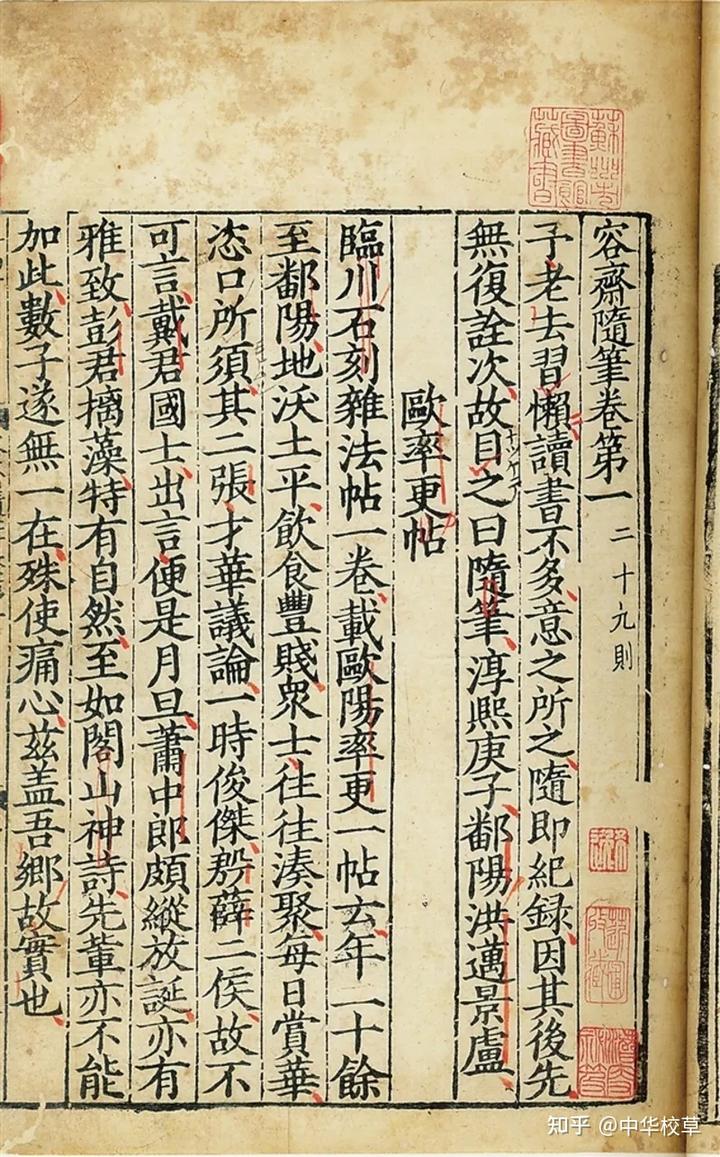 容齋隨筆卷第一 二十九則
予老去習懶讀書不多意之所之隨即紀録因其後先
無復詮次故目之曰隨筆淳熙庚子鄱陽洪邁景盧
歐率更帖
臨川石刻雜法帖一卷載歐陽率更一帖云年二十餘
至鄱陽地沃土平飲食豐賤衆士往往湊聚每日賞華
恣口所須其二張才華議論一時俊傑殷薛二侯故不
可言戴君國士出言便是月旦蕭中郎頗縱放誕亦有
雅致彭君摛藻特有自然至如閣山神詩先輩亦不能
加此數子遂無一在殊使痛心茲盖吾鄉故實也
蘇州市
圖書館
藏書
知乎 @中华校草